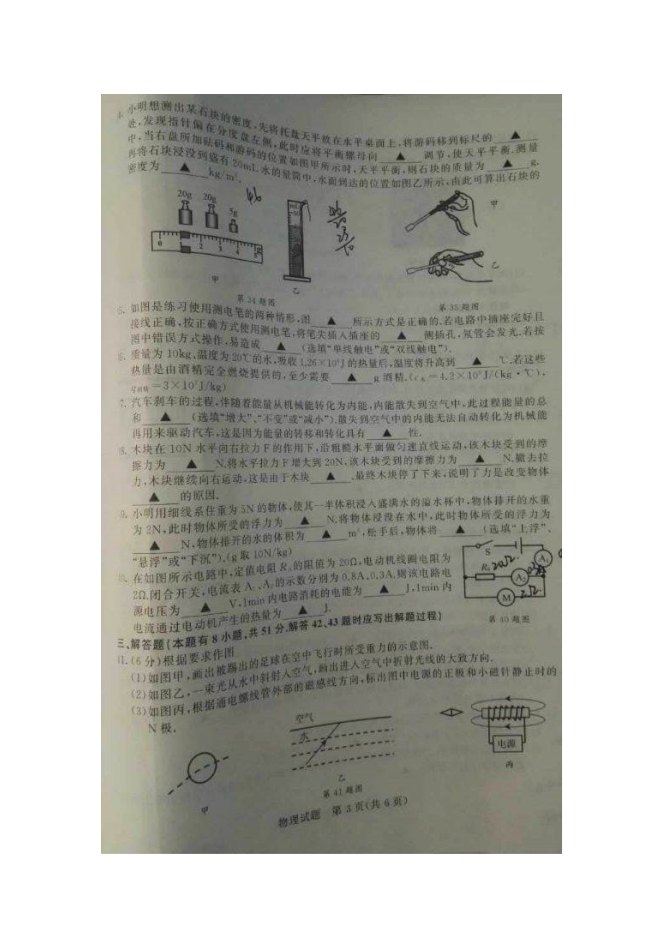 小明想测出某石块的密度,先将托盘天平放在水平桌面上,将游码移到标尺的 ▲
处,发现指针偏在分度盘左侧,此时应将平衡螺母向 ▲ 调节,使天平平衡.测量
中,当右盘所加砝码和游码的位置如图甲所示时,天平平衡,则石块的质量为 ▲ g.
再将石块浸没到盛有20mL水的量筒中,水面到达的位置如图乙所示,由此可算出石块的
密度为 ▲ kg/m³.
20g 20g 5g
0 1 2 3 4 5
甲
乙
甲
乙
第34题图
第35题图
如图是练习使用测电笔的两种情形,图 ▲ 所示方式是正确的.若电路中插座完好且
接线正确,按正确方式使用测电笔,将笔尖插入插座的 ▲ 侧插孔,氖管会发光.若按
图中错误方式操作,易造成 ▲ (选填"单线触电"或"双线触电").
质量为10kg、温度为20℃的水,吸收1.26×10⁶J的热量后,温度将升高到 ▲ ℃.若这些
热量是由酒精完全燃烧提供的,至少需要 ▲ g酒精.(c水=4.2×10³J/(kg·℃),
=3×10⁷J/kg)
汽车刹车的过程,伴随着能量从机械能转化为内能,内能散失到空气中,此过程能量的总
和 ▲ (选填"增大"、"不变"或"减小").散失到空气中的内能无法自动转化为机械能
再用来驱动汽车,这是因为能量的转移和转化具有 ▲ 性.
木块在10N水平向右拉力F的作用下,沿粗糙水平面做匀速直线运动,该木块受到的摩
擦力为 ▲ N.将水平拉力F增大到20N,该木块受到的摩擦力为 ▲ N.撤去拉
力,木块继续向右运动,这是由于木块 ▲ .最终木块停了下来,说明了力是改变物体
▲ 的原因.
小明用细线系住重为5N的物体,使其一半体积浸入盛满水的溢水杯中,物体排开的水重
为2N,此时物体所受的浮力为 ▲ N.将物体浸没在水中,此时物体所受的浮力为
▲ N,物体排开的水的体积为 ▲ m³,松手后,物体将 ▲ (选填"上浮"、
"悬浮"或"下沉").(g取10N/kg)
在如图所示电路中,定值电阻R₁的阻值为20Ω,电动机线圈电阻为
2Ω.闭合开关,电流表A₁、A₂的示数分别为0.8A、0.3A.则该电路电
源电压为 ▲ V,1min内电路消耗的电能为 ▲ J,1min内
电流通过电动机产生的热量为 ▲ J.
S
R₁ 20Ω
A₁
A₂
M 2Ω
第40题图
三、解答题(本题有8小题,共51分.解答42、43题时应写出解题过程)
(6分)根据要求作图
(1)如图甲,画出被踢出的足球在空中飞行时所受重力的示意图.
(2)如图乙,一束光从水中斜射入空气,画出进入空气中折射光线的大致方向.
(3)如图丙,根据通电螺线管外部的磁感线方向,标出图中电源的正极和小磁针静止时的
N极.
空气
水
电源
甲
乙
丙
第41题图
物理试题 第3页(共6页)